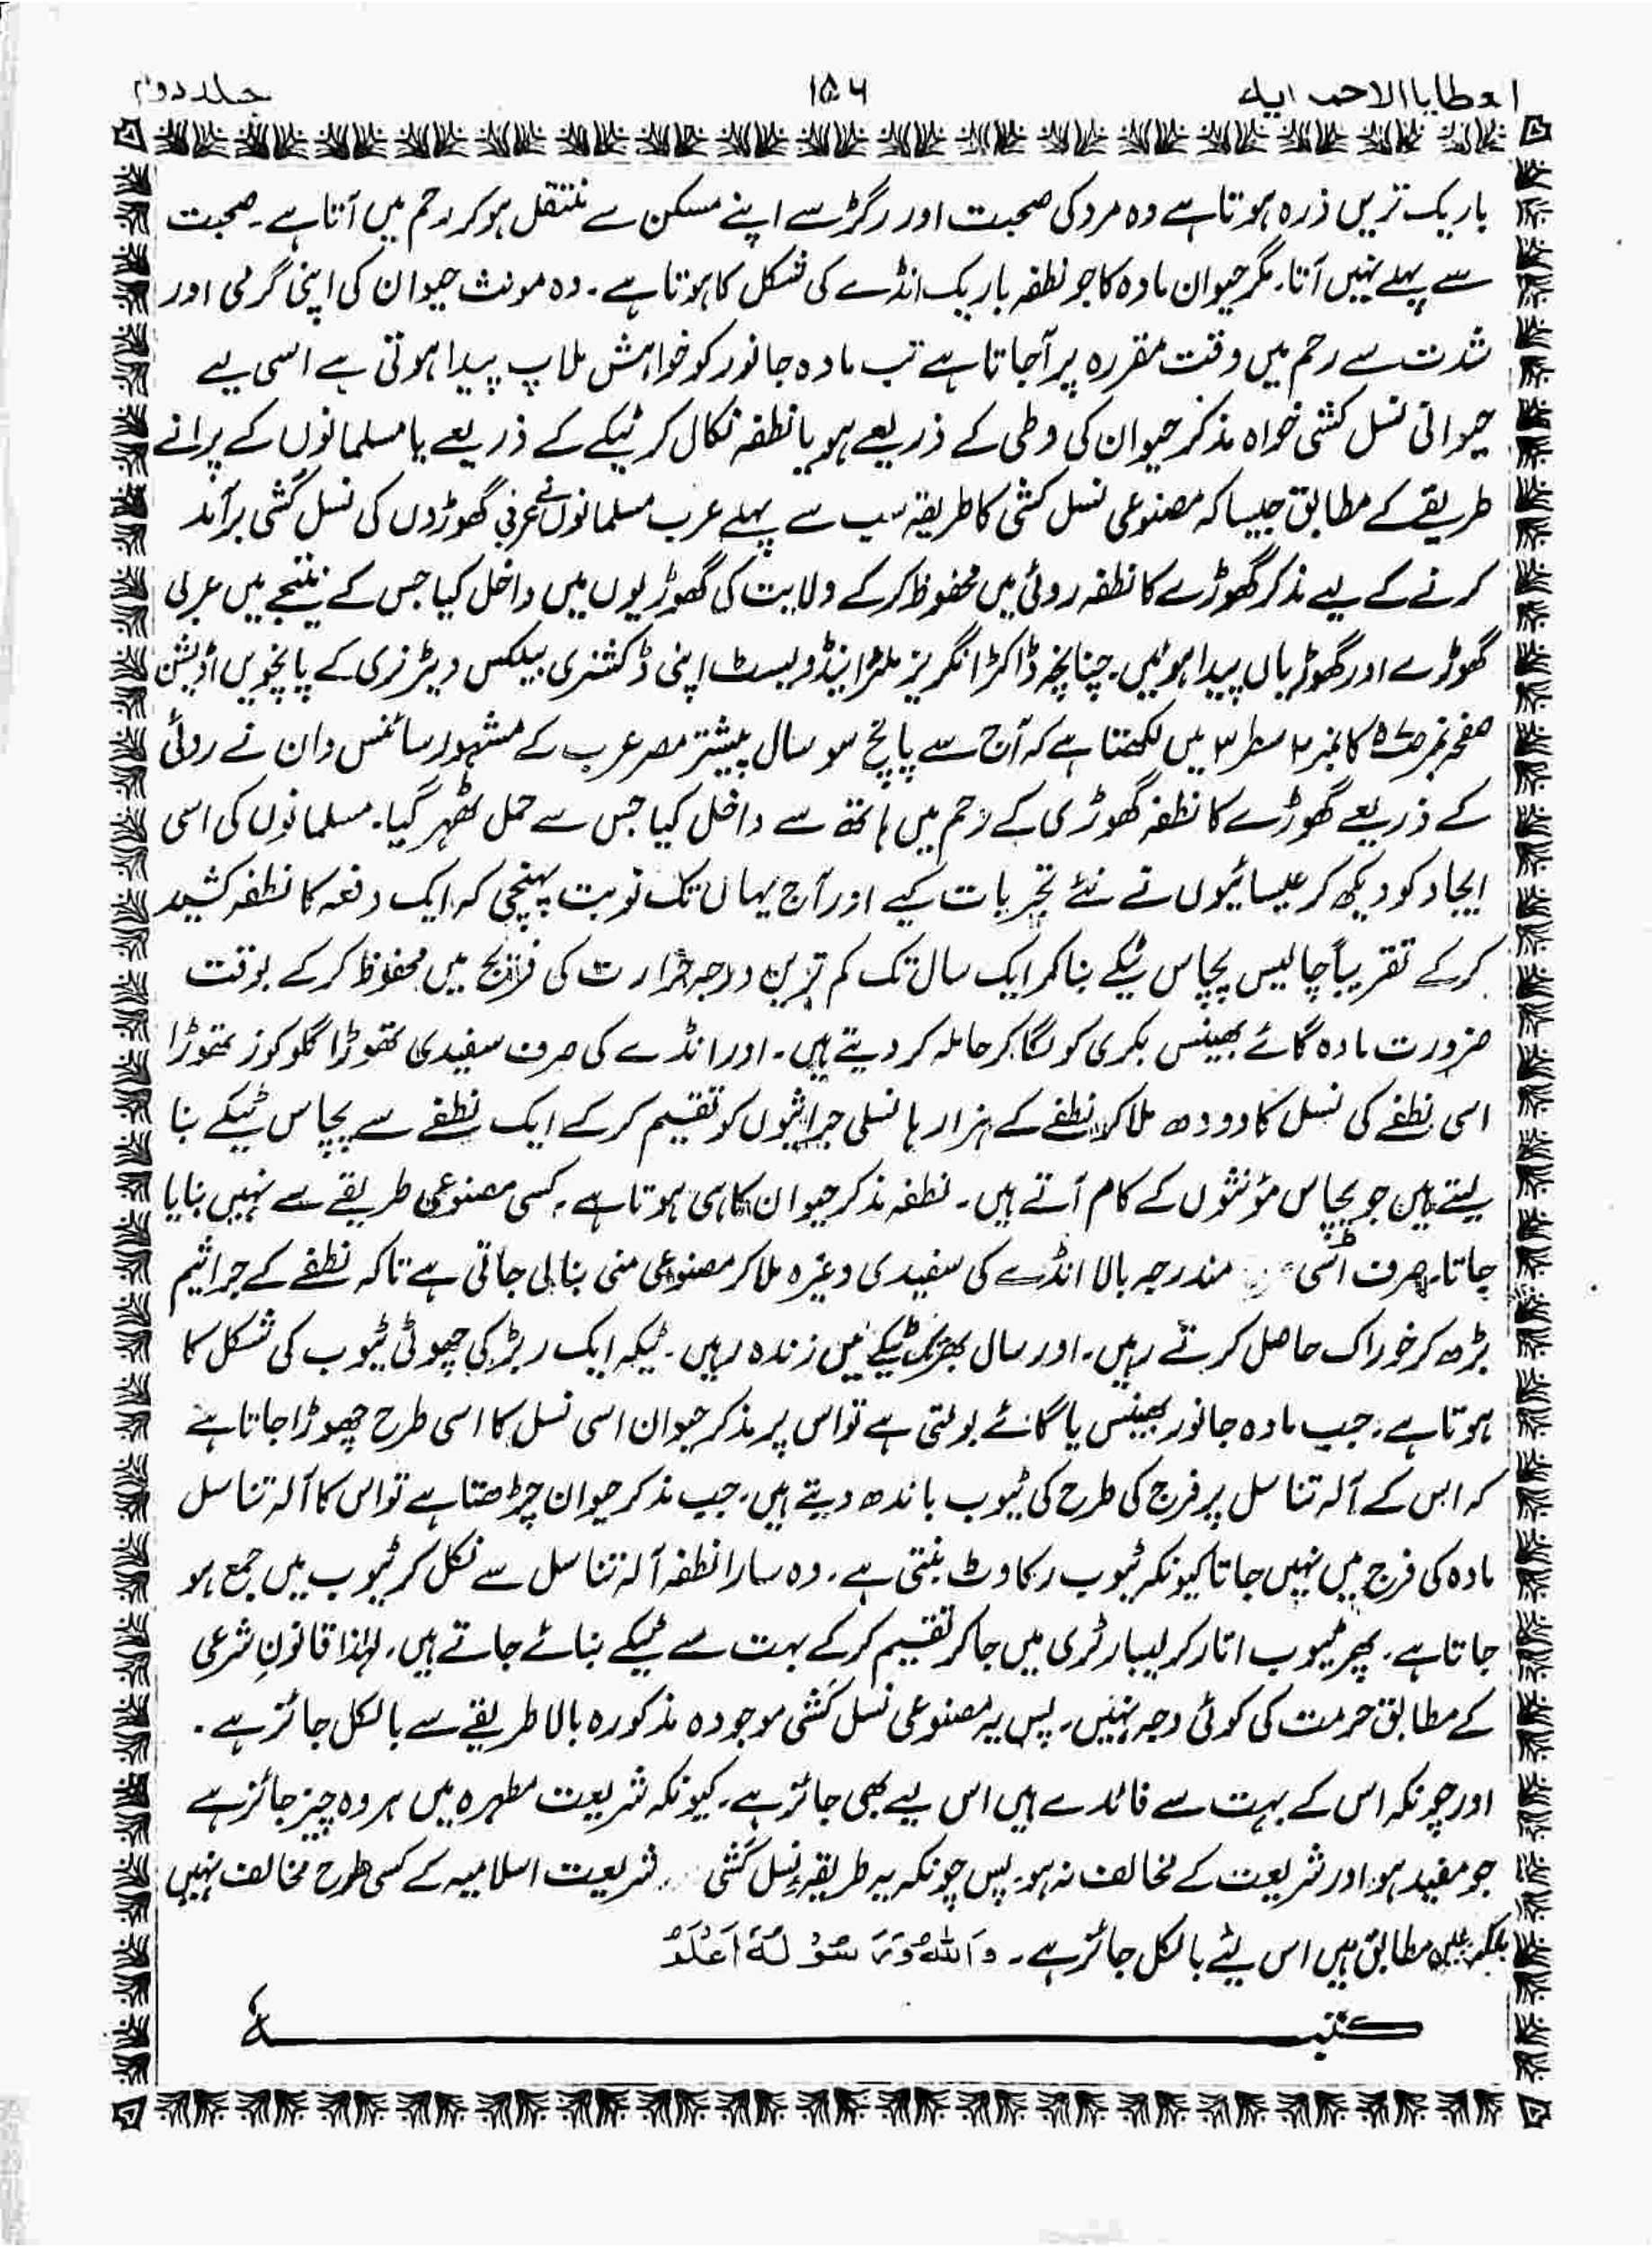 العطایا الاحمدیہ
۱۵۶
جلد دوم
باریک ترین ذرہ ہوتا ہے وہ مرد کی صحبت اور رگڑ سے اپنے مسکن سے منتقل ہو کر رحم میں آتا ہے۔ صحبت
سے پہلے نہیں آتا۔ مگر حیوان مادہ کا جو نطفہ باریک انڈے کی شکل کا ہوتا ہے۔ وہ مونث حیوان کی اپنی گرمی اور
شدت سے رحم میں وقت مقررہ پر آجاتا ہے تب مادہ جانور کو خواہش ملاپ پیدا ہوتی ہے اسی لیے
حیوانی نسل کشی خواہ مذکر حیوان کی وطی کے ذریعے ہو یا نطفہ نکال کر ٹیکے کے ذریعے یا مسلمانوں کے پرانے
طریقے کے مطابق جیسا کہ مصنوعی نسل کشی کا طریقہ سب سے پہلے عرب مسلمانوں نے عربی گھوڑوں کی نسل کشی برآمد
کرنے کے لیے مذکر گھوڑے کا نطفہ روئی میں محفوظ کر کے ولایت کی گھوڑیوں میں داخل کیا جس کے نتیجے میں عربی
گھوڑے اور گھوڑیاں پیدا ہوئیں۔ چنانچہ ڈاکٹر انگریز ملڑ اینڈ ویسٹ اپنی ڈکشنری بیلکس ویٹرنری کے پانچویں اڈیشن
صفحہ نمبر کالم نمبر ۲ سطر ۳ میں لکھتا ہے کہ آج سے پانچ سو سال پیشتر مصر عرب کے مشہور سائنس دان نے روئی
کے ذریعے گھوڑے کا نطفہ گھوڑی کے رحم میں ہاتھ سے داخل کیا جس سے حمل ٹھہر گیا۔ مسلمانوں کی اسی
ایجاد کو دیکھ کر عیسائیوں نے نئے تجربات کیے اور آج یہاں تک نوبت پہنچی کہ ایک دفعہ کا نطفہ کشید
کر کے تقریباً چالیس پچاس ٹیکے بنا کر ایک سال تک کم ترین درجہ حرارت کی فریج میں محفوظ کر کے بوقت
ضرورت مادہ گائے بھینس بکری کو لگا کر حاملہ کر دیتے ہیں۔ اور انڈے کی صرف سفیدی تھوڑا گلوکوز تھوڑا
اسی نطفے کی نسل کا دودھ ملا کر نطفے کے ہزارہا نسلی جراثیوں کو تقسیم کر کے ایک نطفے سے پچاس ٹیکے بنا
لیتے ہیں جو پچاس مؤنثوں کے کام آتے ہیں۔ نطفہ مذکر حیوان کا ہی ہوتا ہے۔ کسی مصنوعی طریقے سے نہیں بنایا
جاتا۔ صرف اسی مندرجہ بالا انڈے کی سفیدی وغیرہ ملا کر مصنوعی منی بنا لی جاتی ہے تاکہ نطفے کے جراثیم
بڑھ کر خوراک حاصل کرتے رہیں۔ اور سال بھر تک ٹیکے میں زندہ رہیں۔ ٹیکہ ایک ربڑ کی چھوٹی ٹیوب کی شکل کا
ہوتا ہے۔ جب مادہ جانور بھینس یا گائے بولتی ہے تو اس پر مذکر حیوان اسی نسل کا اسی طرح چھوڑا جاتا ہے
کہ اس کے آلہ تناسل پر فرج کی طرح کی ٹیوب باندھ دیتے ہیں۔ جب مذکر حیوان چڑھتا ہے تو اس کا آلہ تناسل
مادہ کی فرج میں نہیں جاتا کیونکہ ٹیوب رکاوٹ بنتی ہے۔ وہ سارا نطفہ آلہ تناسل سے نکل کر ٹیوب میں جمع ہو
جاتا ہے۔ پھر ٹیوب اتار کر لیبارٹری میں جا کر تقسیم کر کے بہت سے ٹیکے بنائے جاتے ہیں۔ لہٰذا قانونِ شرعی
کے مطابق حرمت کی کوئی وجہ نہیں۔ پس یہ مصنوعی نسل کشی موجودہ مذکورہ بالا طریقے سے بالکل جائز ہے۔
اور چونکہ اس کے بہت سے فائدے ہیں اس لیے بھی جائز ہے۔ کیونکہ شریعت مطہرہ میں ہر وہ چیز جائز ہے
جو مفید ہو اور شریعت کے مخالف نہ ہو۔ پس چونکہ یہ طریقہ نسل کشی شریعت اسلامیہ کے کسی طرح مخالف نہیں
بلکہ مطابق ہیں اس لیے بالکل جائز ہے۔ وَاللّٰهُ وَرَسُوْلُهٗ اَعْلَمُ
کتبہ